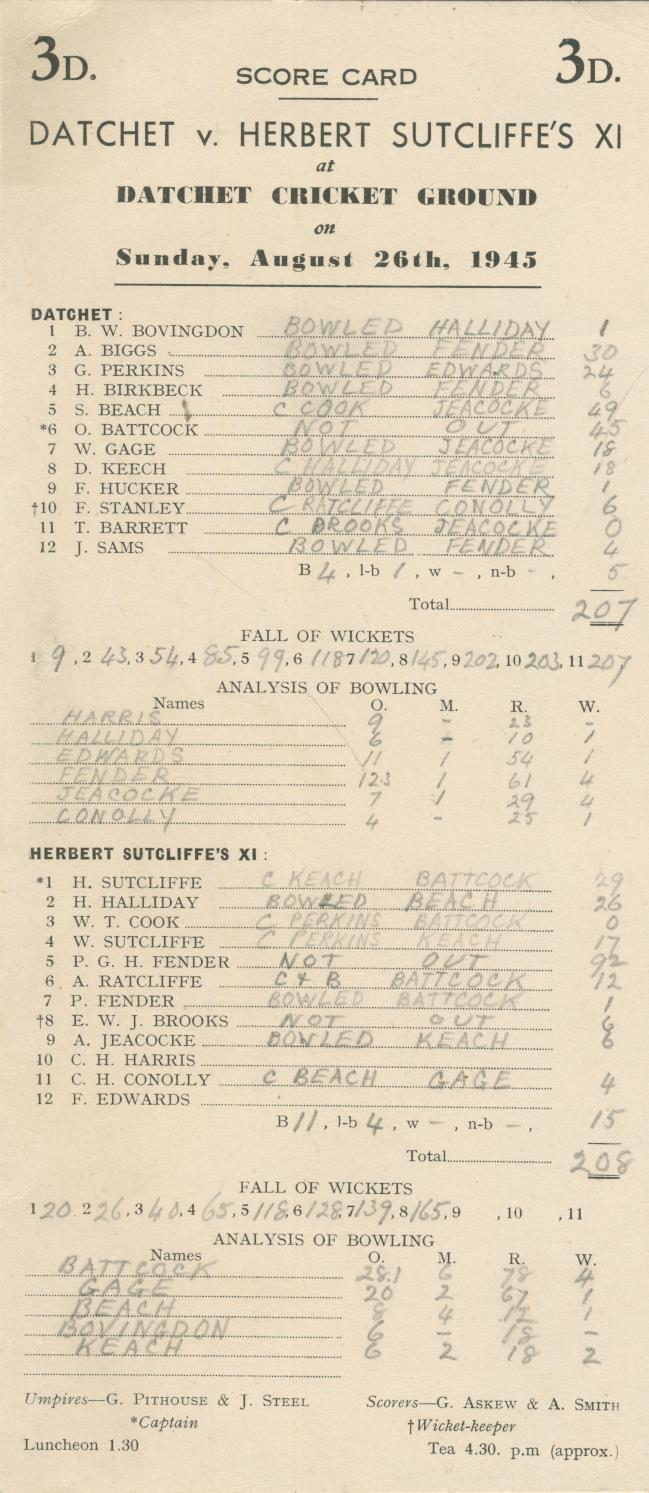 3D. SCORE CARD 3D.
DATCHET v. HERBERT SUTCLIFFE'S XI
at
DATCHET CRICKET GROUND
on
Sunday, August 26th, 1945
DATCHET :
1 B. W. BOVINGDON BOWLED HALLIDAY 1
2 A. BIGGS BOWLED FENDER 30
3 G. PERKINS BOWLED EDWARDS 24
4 H. BIRKBECK BOWLED FENDER 6
5 S. BEACH C COOK JEACOCKE 49
*6 O. BATTCOCK NOT OUT 45
7 W. GAGE BOWLED JEACOCKE 18
8 D. KEECH C HALLIDAY JEACOCKE 18
9 F. HUCKER BOWLED FENDER 1
†10 F. STANLEY C RATCLIFFE CONOLLY 6
11 T. BARRETT C BROOKS JEACOCKE 0
12 J. SAMS BOWLED FENDER 4
B 4, l-b 1, w -, n-b -, 5
Total 207
FALL OF WICKETS
1 9, 2 43, 3 54, 4 85, 5 99, 6 118 7 120, 8 145, 9 202, 10 203, 11 207
ANALYSIS OF BOWLING
Names O. M. R. W.
HARRIS 9 - 23 -
HALLIDAY 6 - 10 1
EDWARDS 11 1 54 1
FENDER 12.3 1 61 4
JEACOCKE 7 1 29 4
CONOLLY 4 - 25 1
HERBERT SUTCLIFFE'S XI :
*1 H. SUTCLIFFE C KEACH BATTCOCK 29
2 H. HALLIDAY BOWLED BEACH 26
3 W. T. COOK C PERKINS BATTCOCK 0
4 W. SUTCLIFFE C PERKINS KEACH 17
5 P. G. H. FENDER NOT OUT 92
6 A. RATCLIFFE C & B BATTCOCK 12
7 P. FENDER BOWLED BATTCOCK 1
†8 E. W. J. BROOKS NOT OUT 6
9 A. JEACOCKE BOWLED KEACH 6
10 C. H. HARRIS
11 C. H. CONOLLY C BEACH GAGE 4
12 F. EDWARDS
B 11, l-b 4, w -, n-b -, 15
Total 208
FALL OF WICKETS
1 20, 2 26, 3 40, 4 65, 5 118, 6 128, 7 139, 8 165, 9 , 10 , 11
ANALYSIS OF BOWLING
Names O. M. R. W.
BATTCOCK 28.1 6 78 4
GAGE 20 2 67 1
BEACH 8 4 12 1
BOVINGDON 6 - 18 -
KEACH 6 2 18 2
Umpires—G. PITHOUSE & J. STEEL Scorers—G. ASKEW & A. SMITH
*Captain †Wicket-keeper
Luncheon 1.30 Tea 4.30. p.m (approx.)